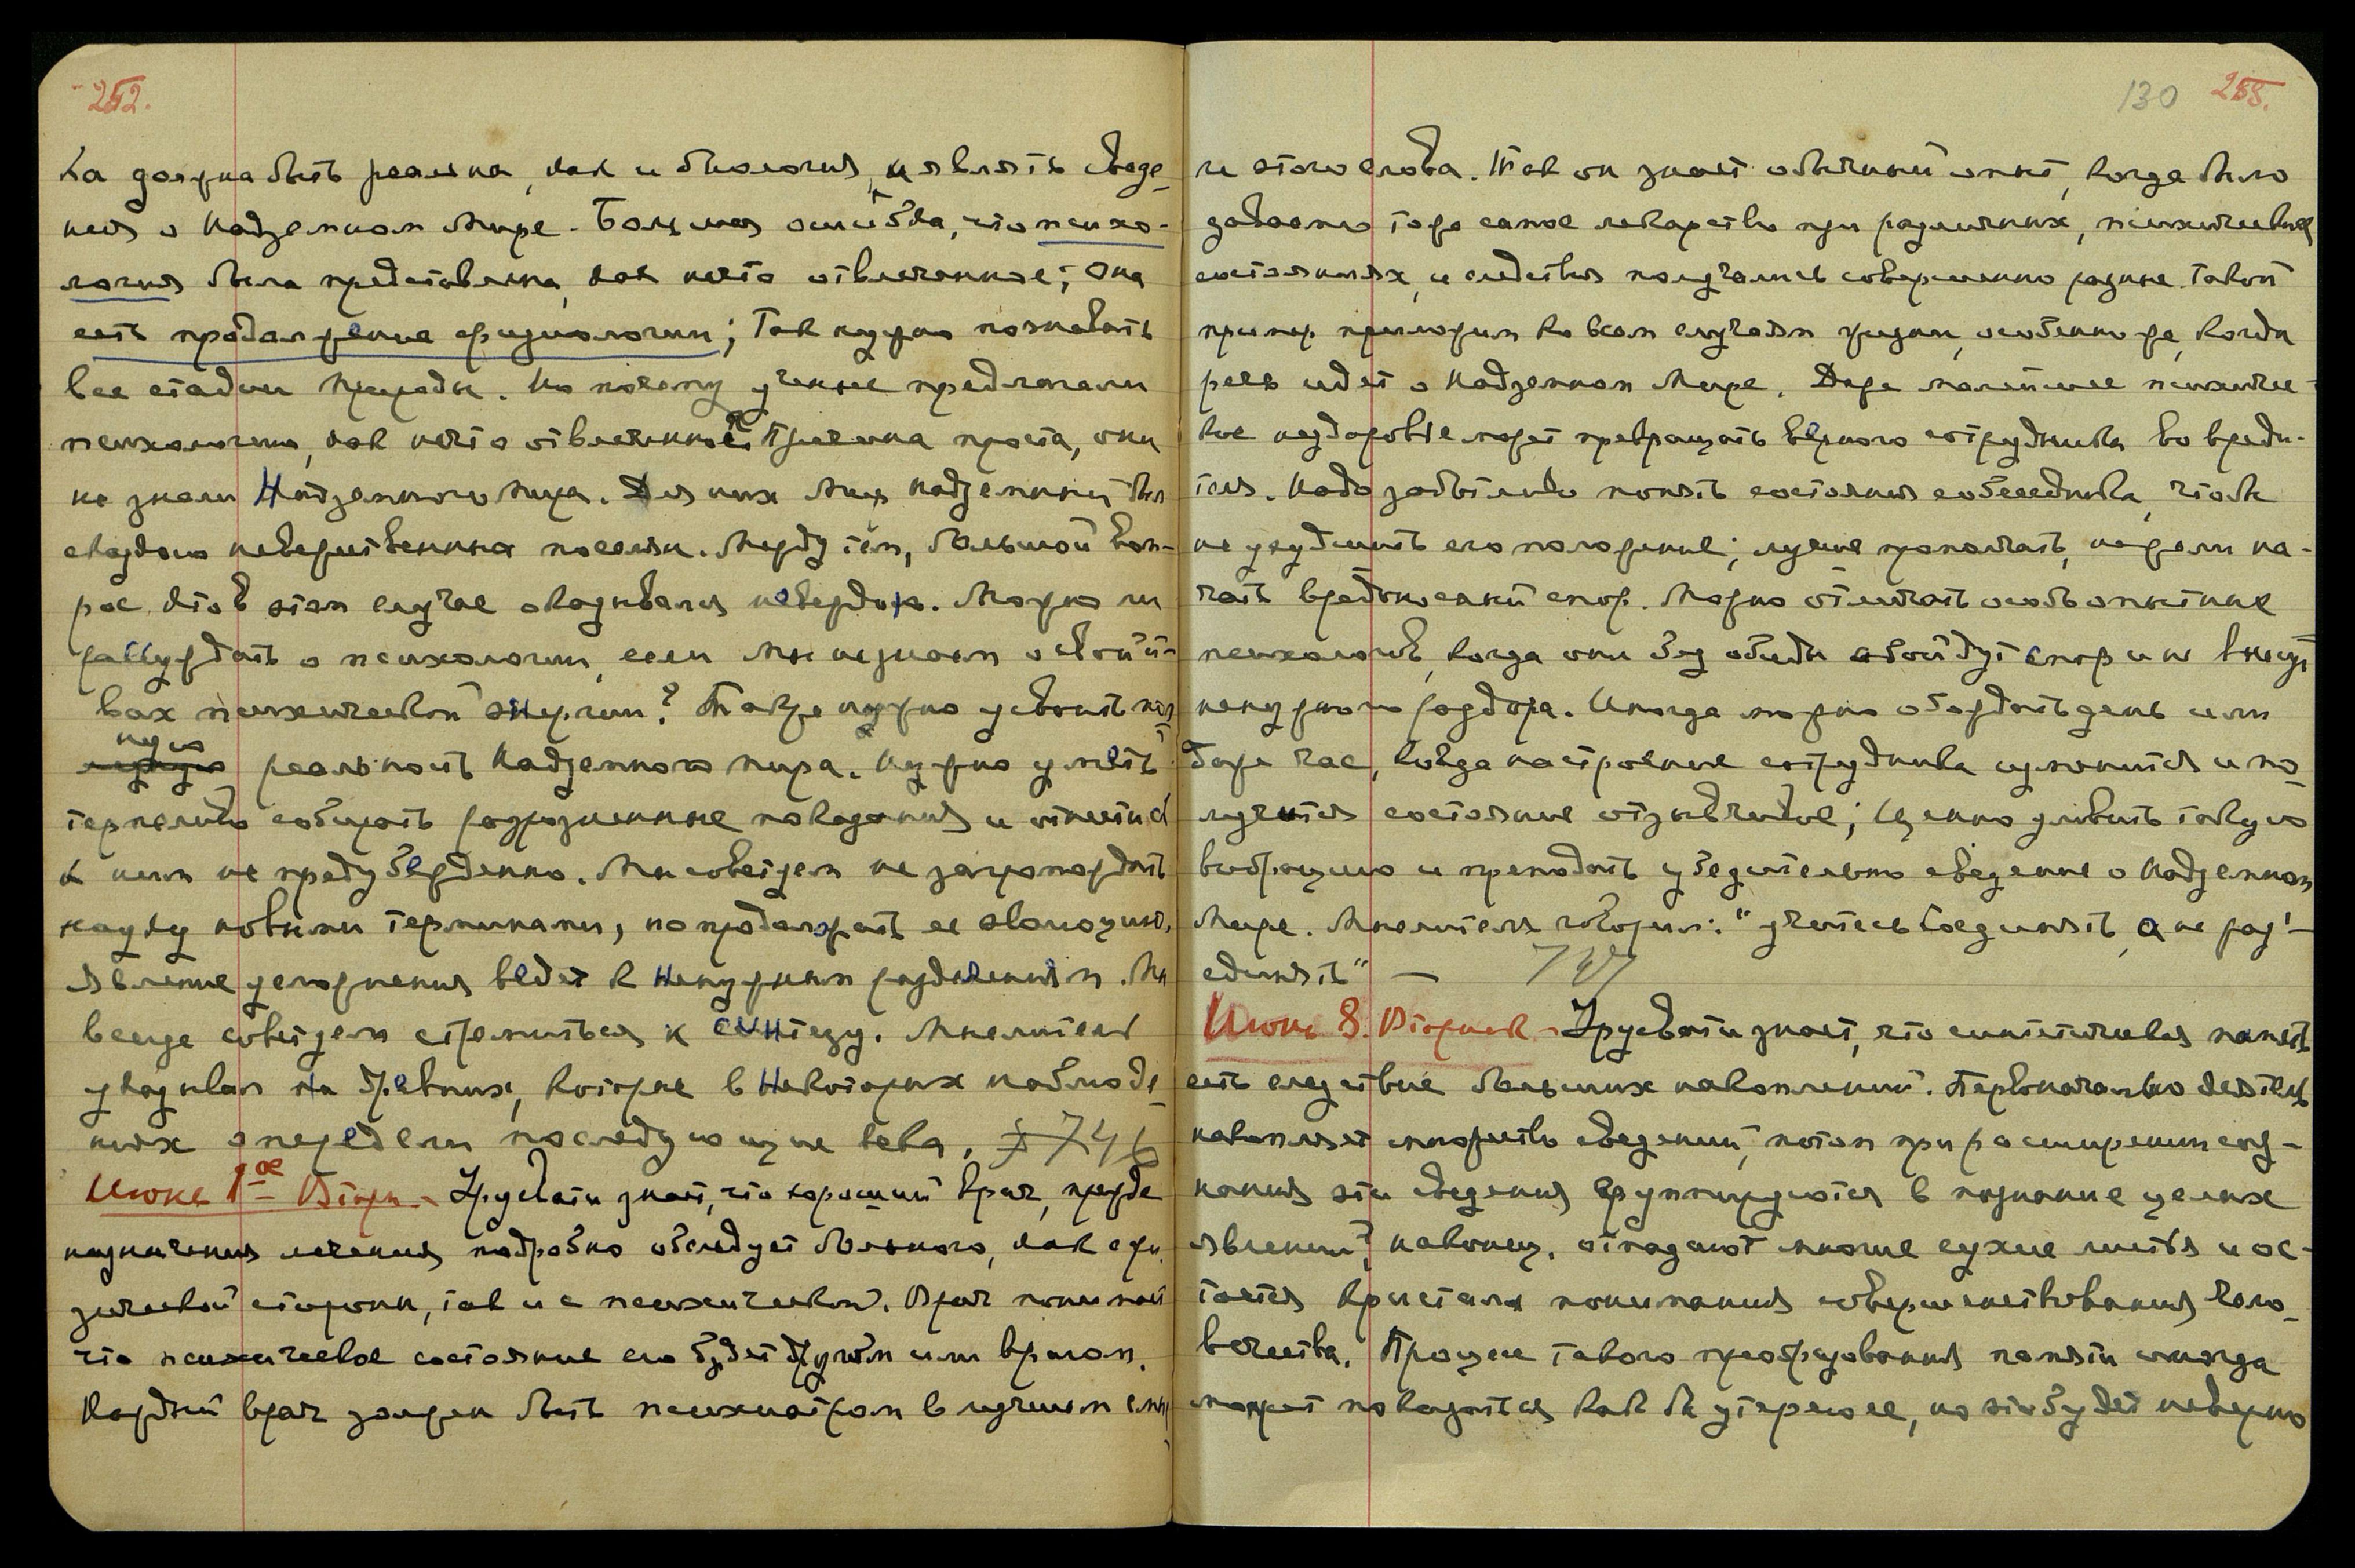 252.
ка должна быть реальна, как и биология, и являть сведе-
ния о Надземном Мире. Большая ошибка, что психо-
логия была представлена, как нечто отвлеченное; она
есть продолжение физиологии; так нужно познавать
все стадии природы. Но почему ученые предлагали
психологию, как нечто отвлеченное? Причина проста, они
не знали Надземного мира. Для них Мир Надземный был
сказкою невежественных поселян. Между тем, большой воп-
рос кто в этом случае оказывался невеждою. Можно ли
рассуждать о психологии, если мы не знаем о свойст-
вах психической энергии? Также нужно усвоить пол
ную реальность Надземного мира. Нужно уметь
терпеливо собирать разрозненные показания и отнестись
к ним не предубежденно. Мы советуем не загромождать
науку новыми терминами, но продолжать ее эволюцию.
явление усложнения ведет к ненужным разделениям. Мы
всегда советуем стремиться к синтезу. Мыслитель
указывал на древних, которые в некоторых наблюде-
ниях опередили последующие века. § 746
Июня 1ое Вторн - Урусвати знает, что хороший врач, прежде
назначения лечения подробно обследует больного, как с фи-
зической стороны, так и с психической. Врач понимает
что психическое состояние его будет другом или врагом.
Каждый врач должен быть психиатром в лучшем смы
130 253.
ле этого слова. Так он знает обычный опыт, когда было
даваемо тоже самое лекарство при различных, психических
состояниях, и следствия получались совершенно разные. Такой
пример приложим ко всем случаям жизни, особенно же, когда
речь идет о Надземном Мире. Даже малейшее психичес-
кое нездоровье может превращать верного сотрудника во вреди-
теля. Надо заботливо понять состояния собеседника, чтобы
не ухудшить его положение; лучше промолчать, нежели на-
чать вредоносный спор. Можно отличать особо опытные
психологов, когда они без обиды обойдут спор и не внесут
ненужного раздора. Иногда можно обождать день или
даже час, когда настроение сотрудника изменится и по
лучится состояние отзывчивое; Ценно уловить такую
вибрацию и преподать убедительно сведение о Надземном
Мире. Мыслитель говорил: "учитесь соединять, а не разъ-
единять" — 747
Июнь 8. Вторник - Урусвати знает, что синтетическая память
есть следствие больших накоплений. Первоначально деятель
накопляет множество сведений, потом при расширении соз-
нания эти сведения группируются в познание целых
явлений, наконец, отпадают многие сухие листья и ос-
тается кристалл понимания совершенствования чело-
вечества. Процесс такого преобразования памяти иногда
может показаться как бы утерею ее, но это будет неверно